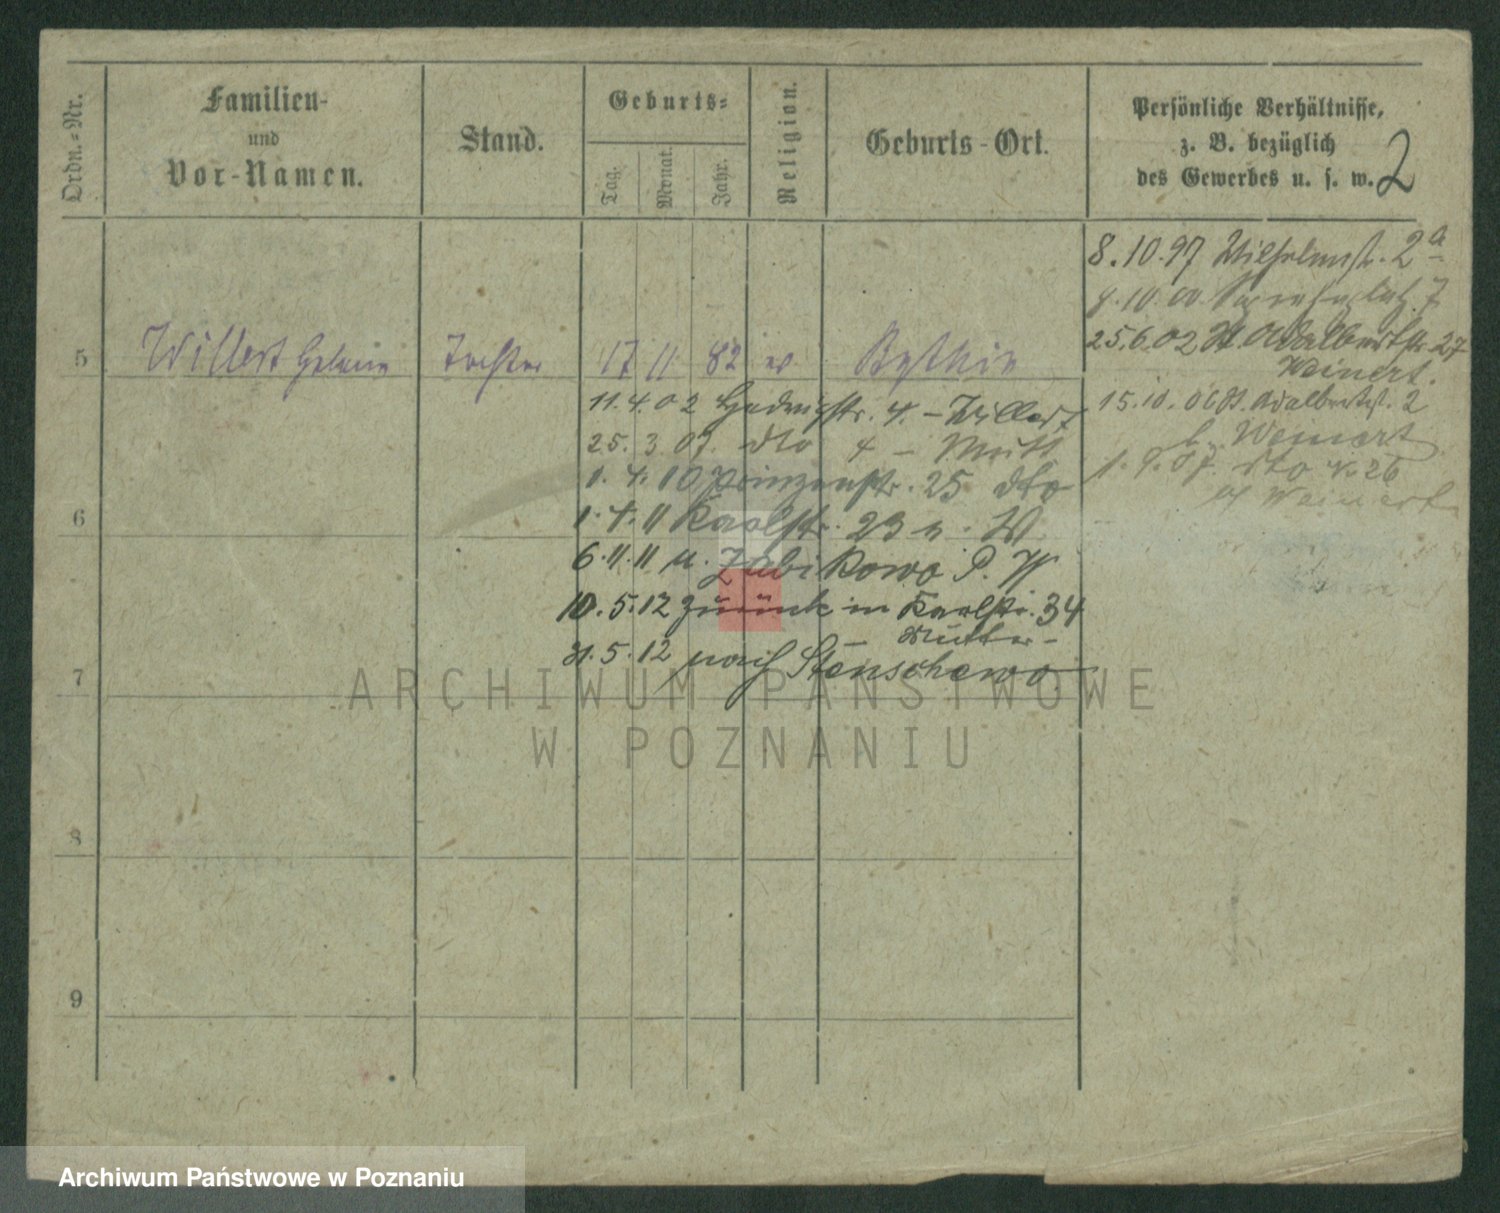 Ordn.-Nr.
Familien-
und
Vor-Namen.
Stand.
Geburts-
Tag.
Monat.
Jahr.
Religion.
Geburts-Ort.
Persönliche Verhältnisse,
z. B. bezüglich
des Gewerbes u. s. w.
2
8.10.97 Wilhelmstr. 2a
25.6.02 St. Adalbertstr. 27
Weinert.
5 Willert Helene Tochter 17 11 82 ev Bythin
11.4.02 Hedwigstr. 4. - Willert
15.10.06 St. Adalbertst. 2
b. Weinert
25.3.07. dto 4 - Mutt
1.9.07. dto N. 26
b/ Weinert
1.4.10 Prinzenstr. 25 dto
6
1.4.11 Karlstr. 23 n. W
6.11.11 n. Zabikowo P. W
10.5.12 zurück in Karlstr. 34
Mutter -
31.5.12 nach Stenschewo
7
ARCHIWUM PAŃSTWOWE
W POZNANIU
8
9
Archiwum Państwowe w Poznaniu